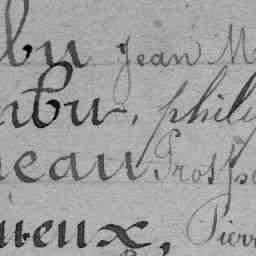 bu Jean M
mbu, phili
neau Prospe
ueux, Pierr